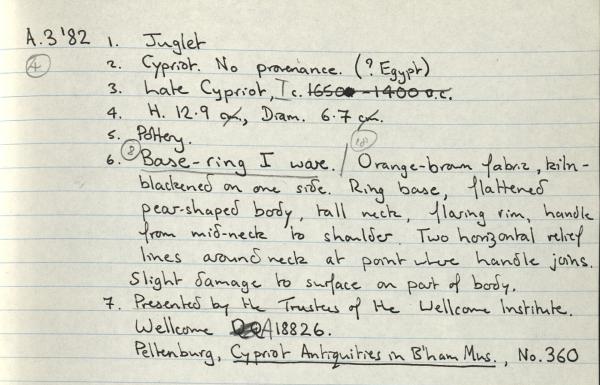 A.3'82 1. Juglet
④ 2. Cypriot. No provenance. (? Egypt)
3. Late Cypriot, I c. 1650 - 1400 B.C.
4. H. 12.9 cm, Diam. 6.7 cm.
5. Pottery.
6. ⑧ Base-ring I ware. / Orange-brown fabric, kiln-
blackened on one side. Ring base, flattened
pear-shaped body, tall neck, flaring rim, handle
from mid-neck to shoulder. Two horizontal relief
lines around neck at point where handle joins.
Slight damage to surface on part of body.
7. Presented by the Trustees of the Wellcome Institute.
Wellcome A18826.
Peltenburg, Cypriot Antiquities in B'ham Mus., No. 360